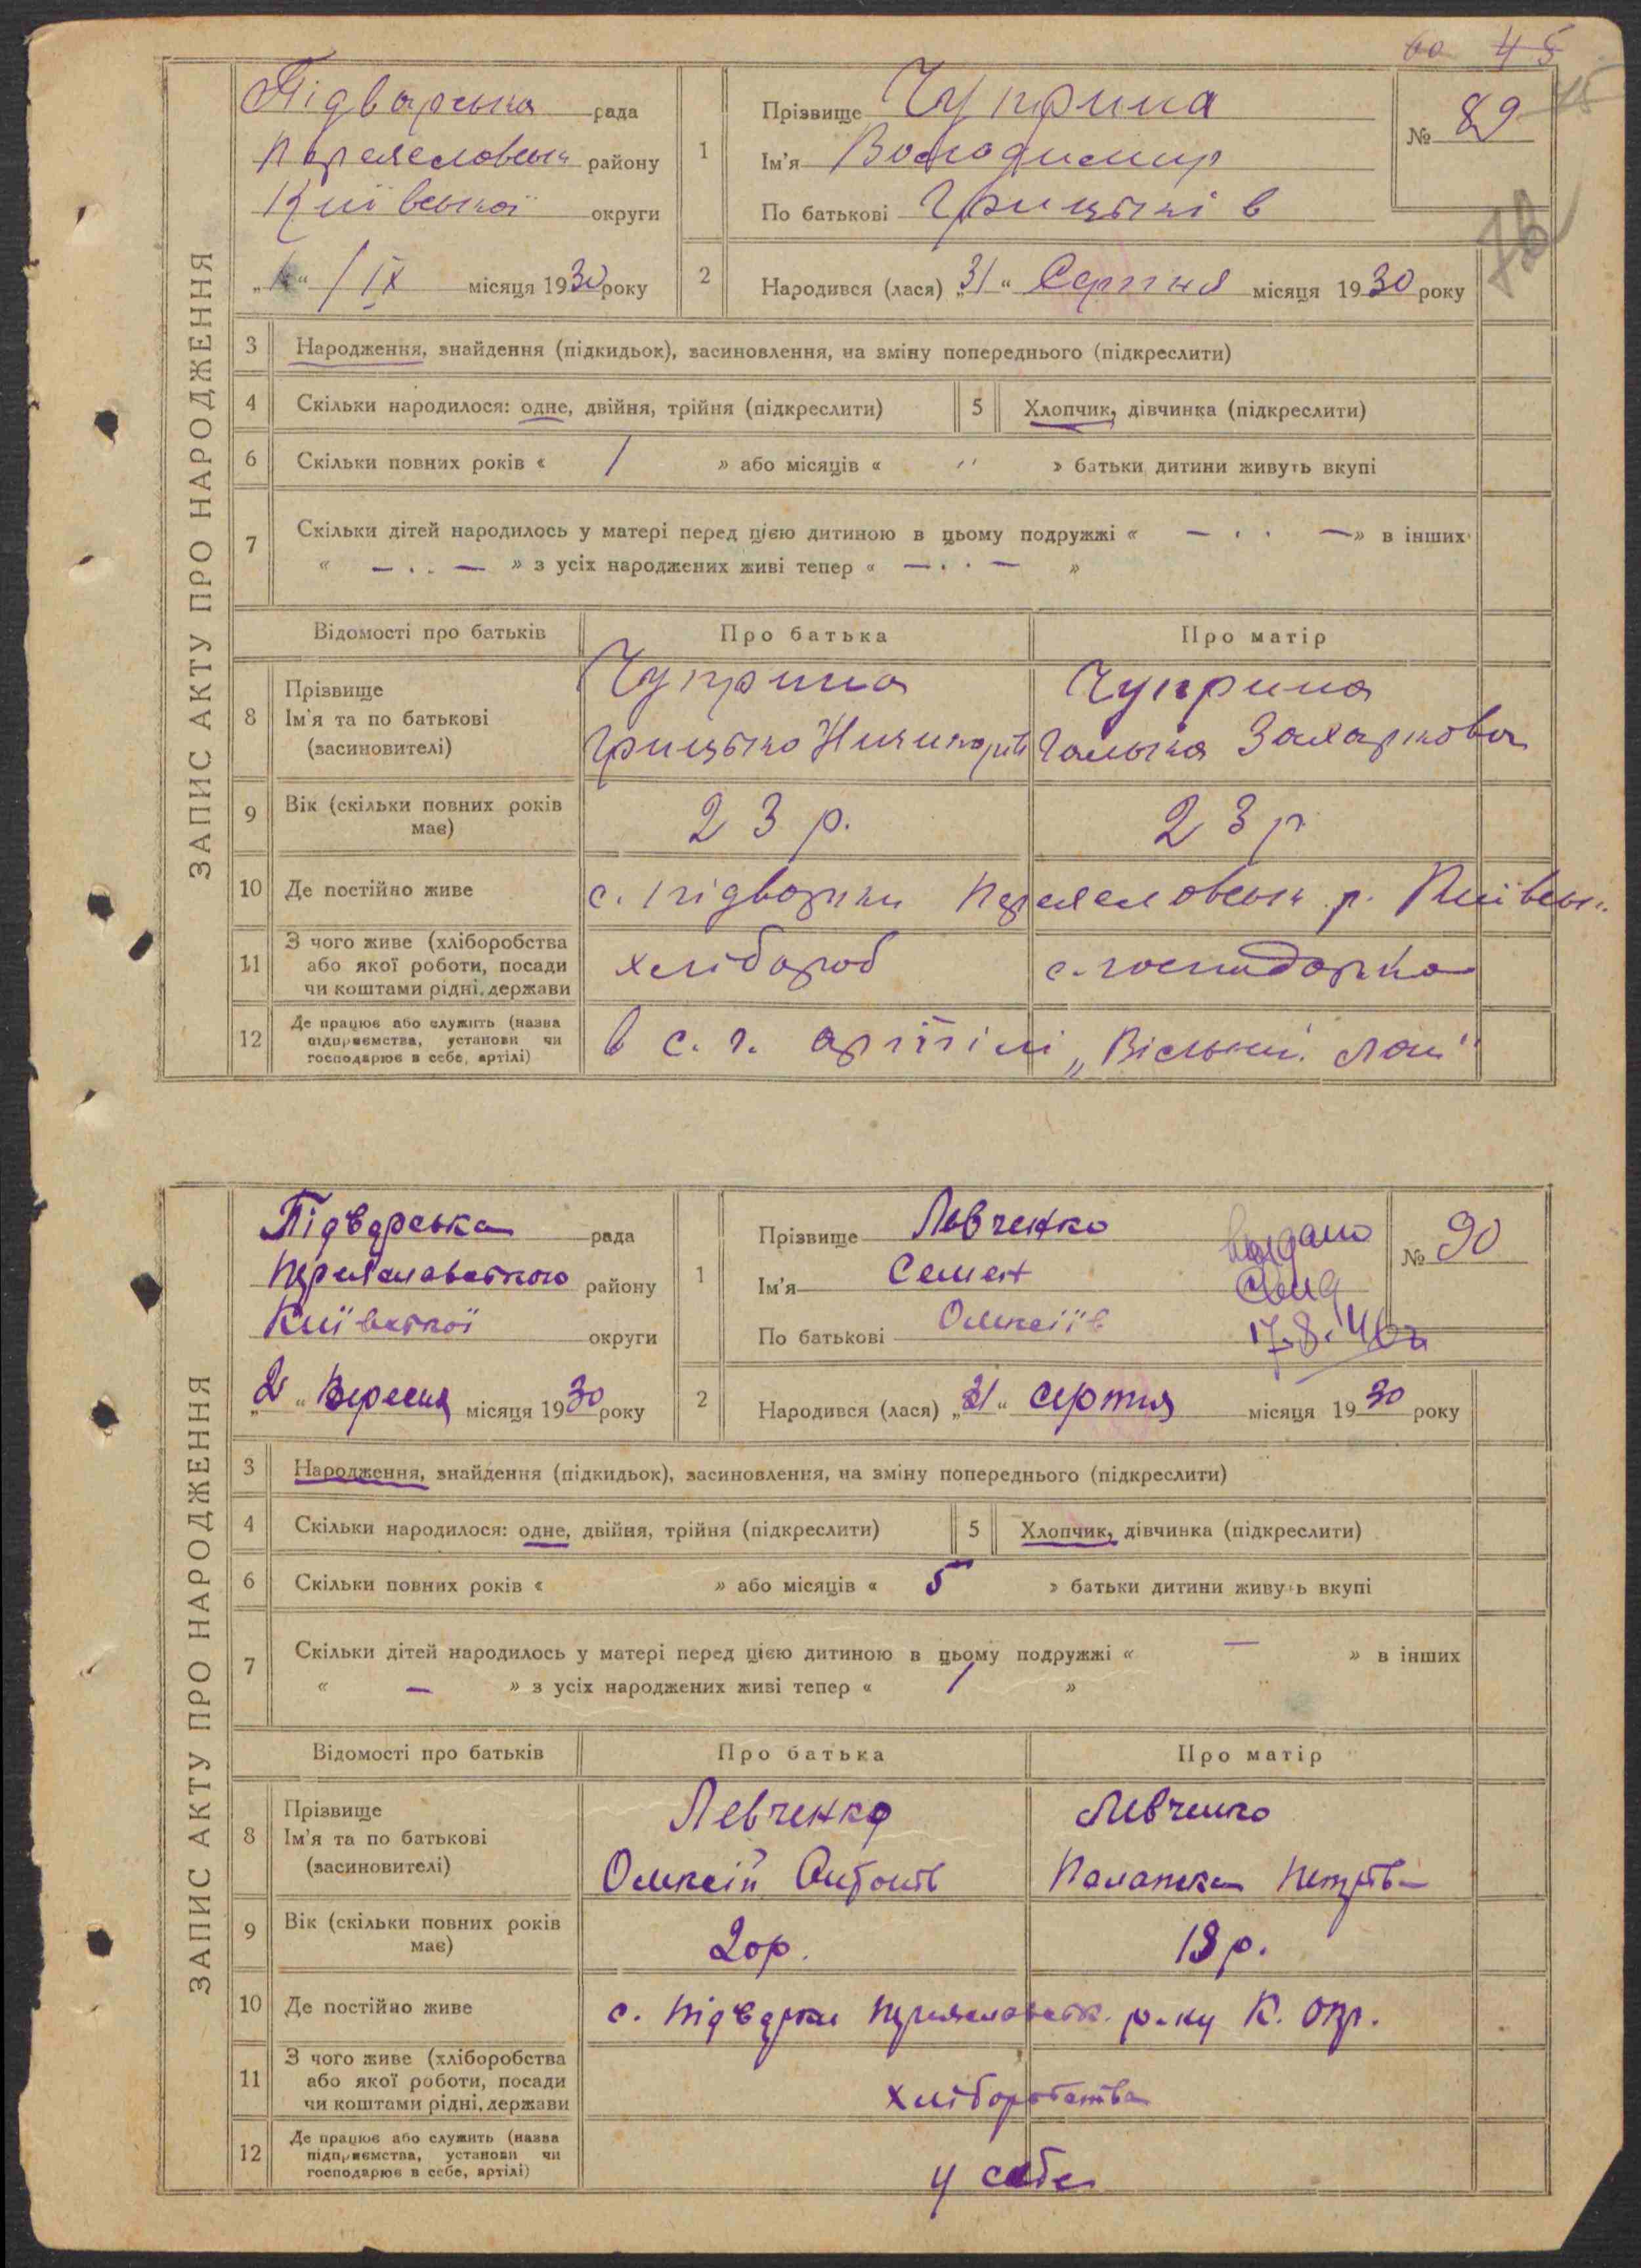 60 45
15
ЗАПИС АКТУ ПРО НАРОДЖЕННЯ
Підварська рада
Переяславськ району
Київської округи
„1“ / ІХ місяця 1930 року
1 Прізвище Чуприна
Ім'я Володимир
По батькові Грицьків
№ 89
2 Народився (лася) „31“ Серпня місяця 1930 року
3 Народження, знайдення (підкидьок), засиновлення, на зміну попереднього (підкреслити)
4 Скільки народилося: одне, двійня, трійня (підкреслити) 5 Хлопчик, дівчинка (підкреслити)
6 Скільки повних років « 1 » або місяців « " » батьки дитини живуть вкупі
7 Скільки дітей народилось у матері перед цією дитиною в цьому подружжі « — . . — » в інших
« — . . — » з усіх народжених живі тепер « — . . — »
Відомості про батьків Про батька Про матір
8 Прізвище Ім'я та по батькові (засиновителі)
Чуприна Чуприна
Грицько Никифорів Галька Захаркова
9 Вік (скільки повних років має) 23 р. 23 р
10 Де постійно живе с. Підварки Переяславськ. р. Київськ.
11 З чого живе (хліборобства або якої роботи, посади чи коштами рідні, держави хлібороб с. господарка
12 Де працює або служить (назва підприємства, установи чи господарює в себе, артілі) в с. г. артілі „Вільний лан"
ЗАПИС АКТУ ПРО НАРОДЖЕННЯ
Підварська рада
Переяславського району
Київської округи
„2“ Вересня місяця 1930 року
1 Прізвище Левченко
Ім'я Семен
По батькові Олексіїв
17.8.46
№ 90
2 Народився (лася) „31“ серпня місяця 1930 року
3 Народження, знайдення (підкидьок), засиновлення, на зміну попереднього (підкреслити)
4 Скільки народилося: одне, двійня, трійня (підкреслити) 5 Хлопчик, дівчинка (підкреслити)
6 Скільки повних років « » або місяців « 5 » батьки дитини живуть вкупі
7 Скільки дітей народилось у матері перед цією дитиною в цьому подружжі « — » в інших
« — » з усіх народжених живі тепер « 1 »
Відомості про батьків Про батька Про матір
8 Прізвище Ім'я та по батькові (засиновителі)
Левченко Левченко
Олексій Антонів Палажка Петрівна
9 Вік (скільки повних років має) 20р. 18 р.
10 Де постійно живе с. Підварки Переяславськ. р-ну К. Окр.
11 З чого живе (хліборобства або якої роботи, посади чи коштами рідні, держави хліборобства
12 Де працює або служить (назва підприємства, установи чи господарює в себе, артілі) у себе